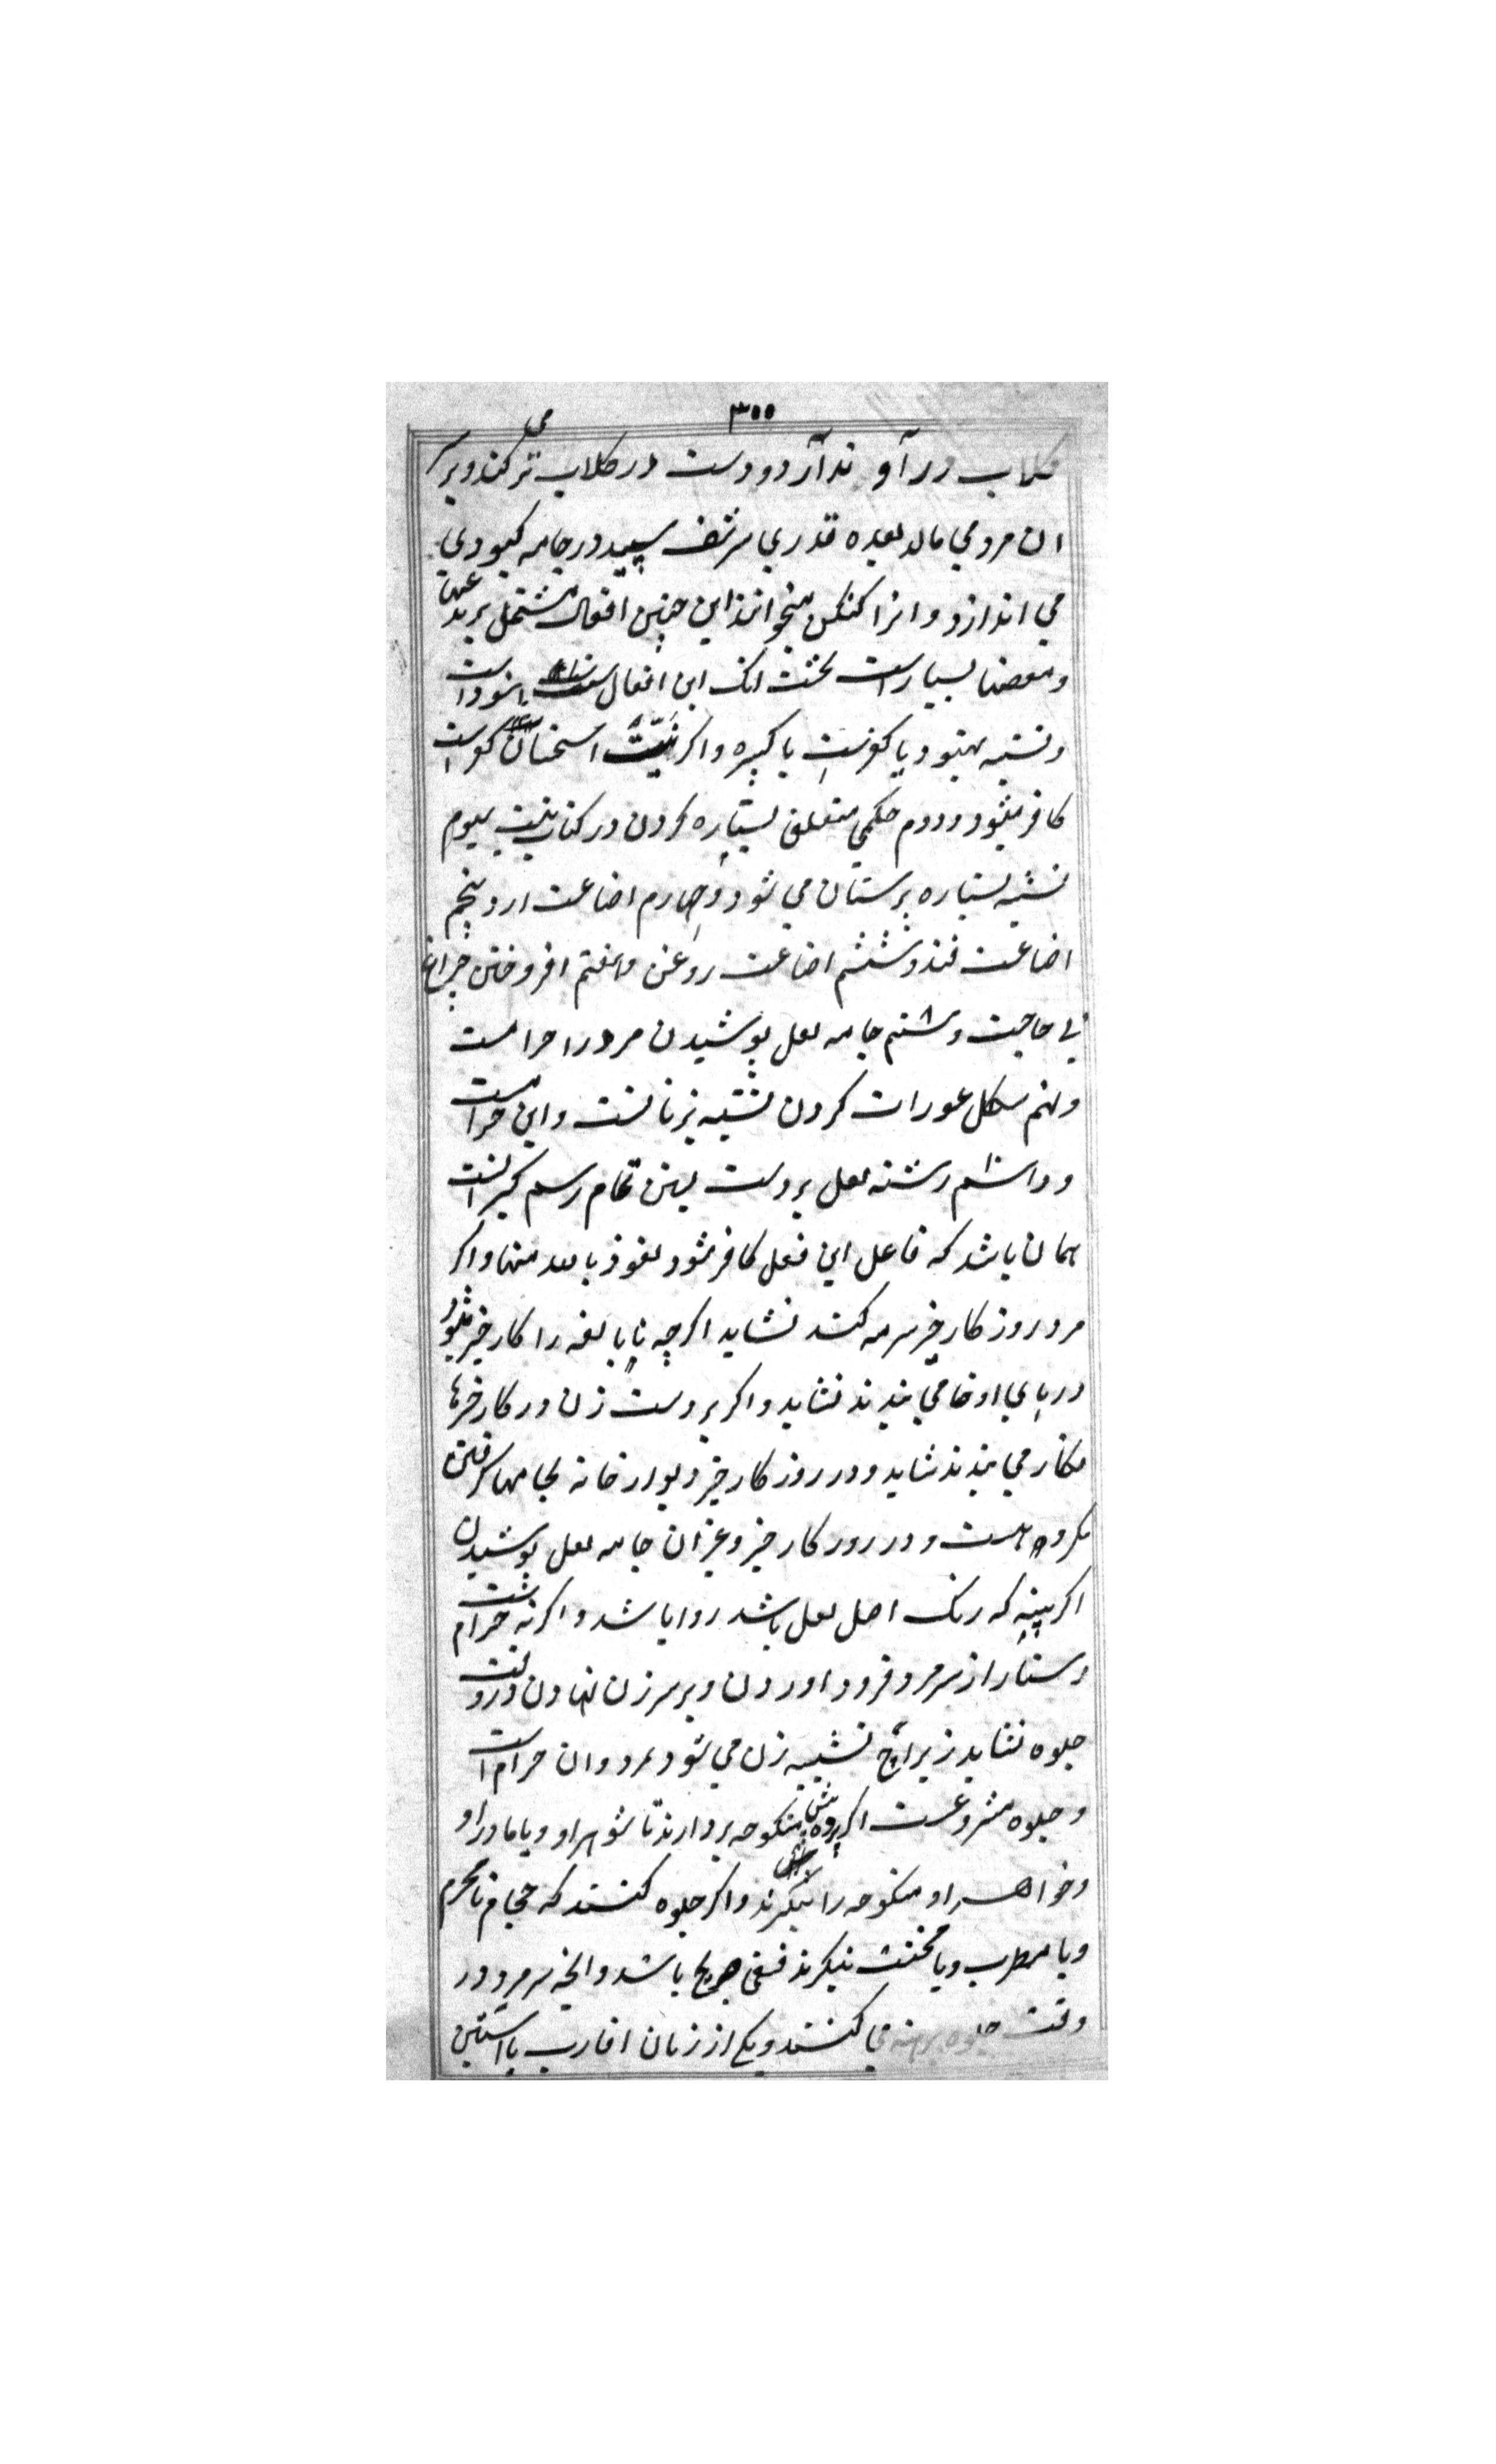 ۳۰۰
کلاب در آوند آرد و دست در کلاب تر می کند و بر سر
ان مرد می مالد بعده قدری سرشف سپید در جامه کبودی
می اندازد و انرا کنکن میخوانند این چنین افعال مشتمل بر بدعتها
و بسیار است نخست انک این افعال است
و تشبه بهنود یا کفرست یا کبیره و اکر نیت است
کافر میشود و دوم حکمی متعلق بستاره کردن در کتاب سیوم
تشبه بستاره پرستان می شود و چهارم اضاعت ارد و پنجم
اضاعت قند و ششم اضاعت روغن و هفتم افروختن چراغ
بی حاجت و هشتم جامه لعل پوشیدن مرد را حرامست
و نهم شکل عورات کردن تشبه بزنانست و این حرامست
و دهم رشته لعل بر دست بستن تمام رسم کبرانست
همان باشد که فاعل این فعل کافر شود نعوذ بالله منها و اکر
مرد روز کار خیر سرمه کند نشاید اکرچه نابالغه را کار خیر میشود
در پای او حنا می بندند نشاید و اکر بر دست زن در کار خیرها
نکار می بندند شاید و در روز کار خیر دیوار خانه بجامها کرفتن
مکروه است و در روز کار خیر و غیر ان جامه لعل پوشیدن
اکر بینه که رنک اصل لعل باشد روا باشد و اکر نه حرام
دستار از سر مرد فرود اوردن و بر سر زن نهادن در وقت
جلوه نشاید زیراچ تشبیه زن می شود بمرد و ان حرام است
و جلوه مشروعست اکر پرده منکوحه بردارند تا شوهر او و یا مادر او
و خواهر او منکوحه را بنکرند و اکر جلوه کنند که حجام نامحرم
و یا مطرب و یا مخنث بنکرند فسق صریح باشد و انچه سر مرد در
وقت جلوه برهنه می کنند و یکی از زنان اقارب با استین